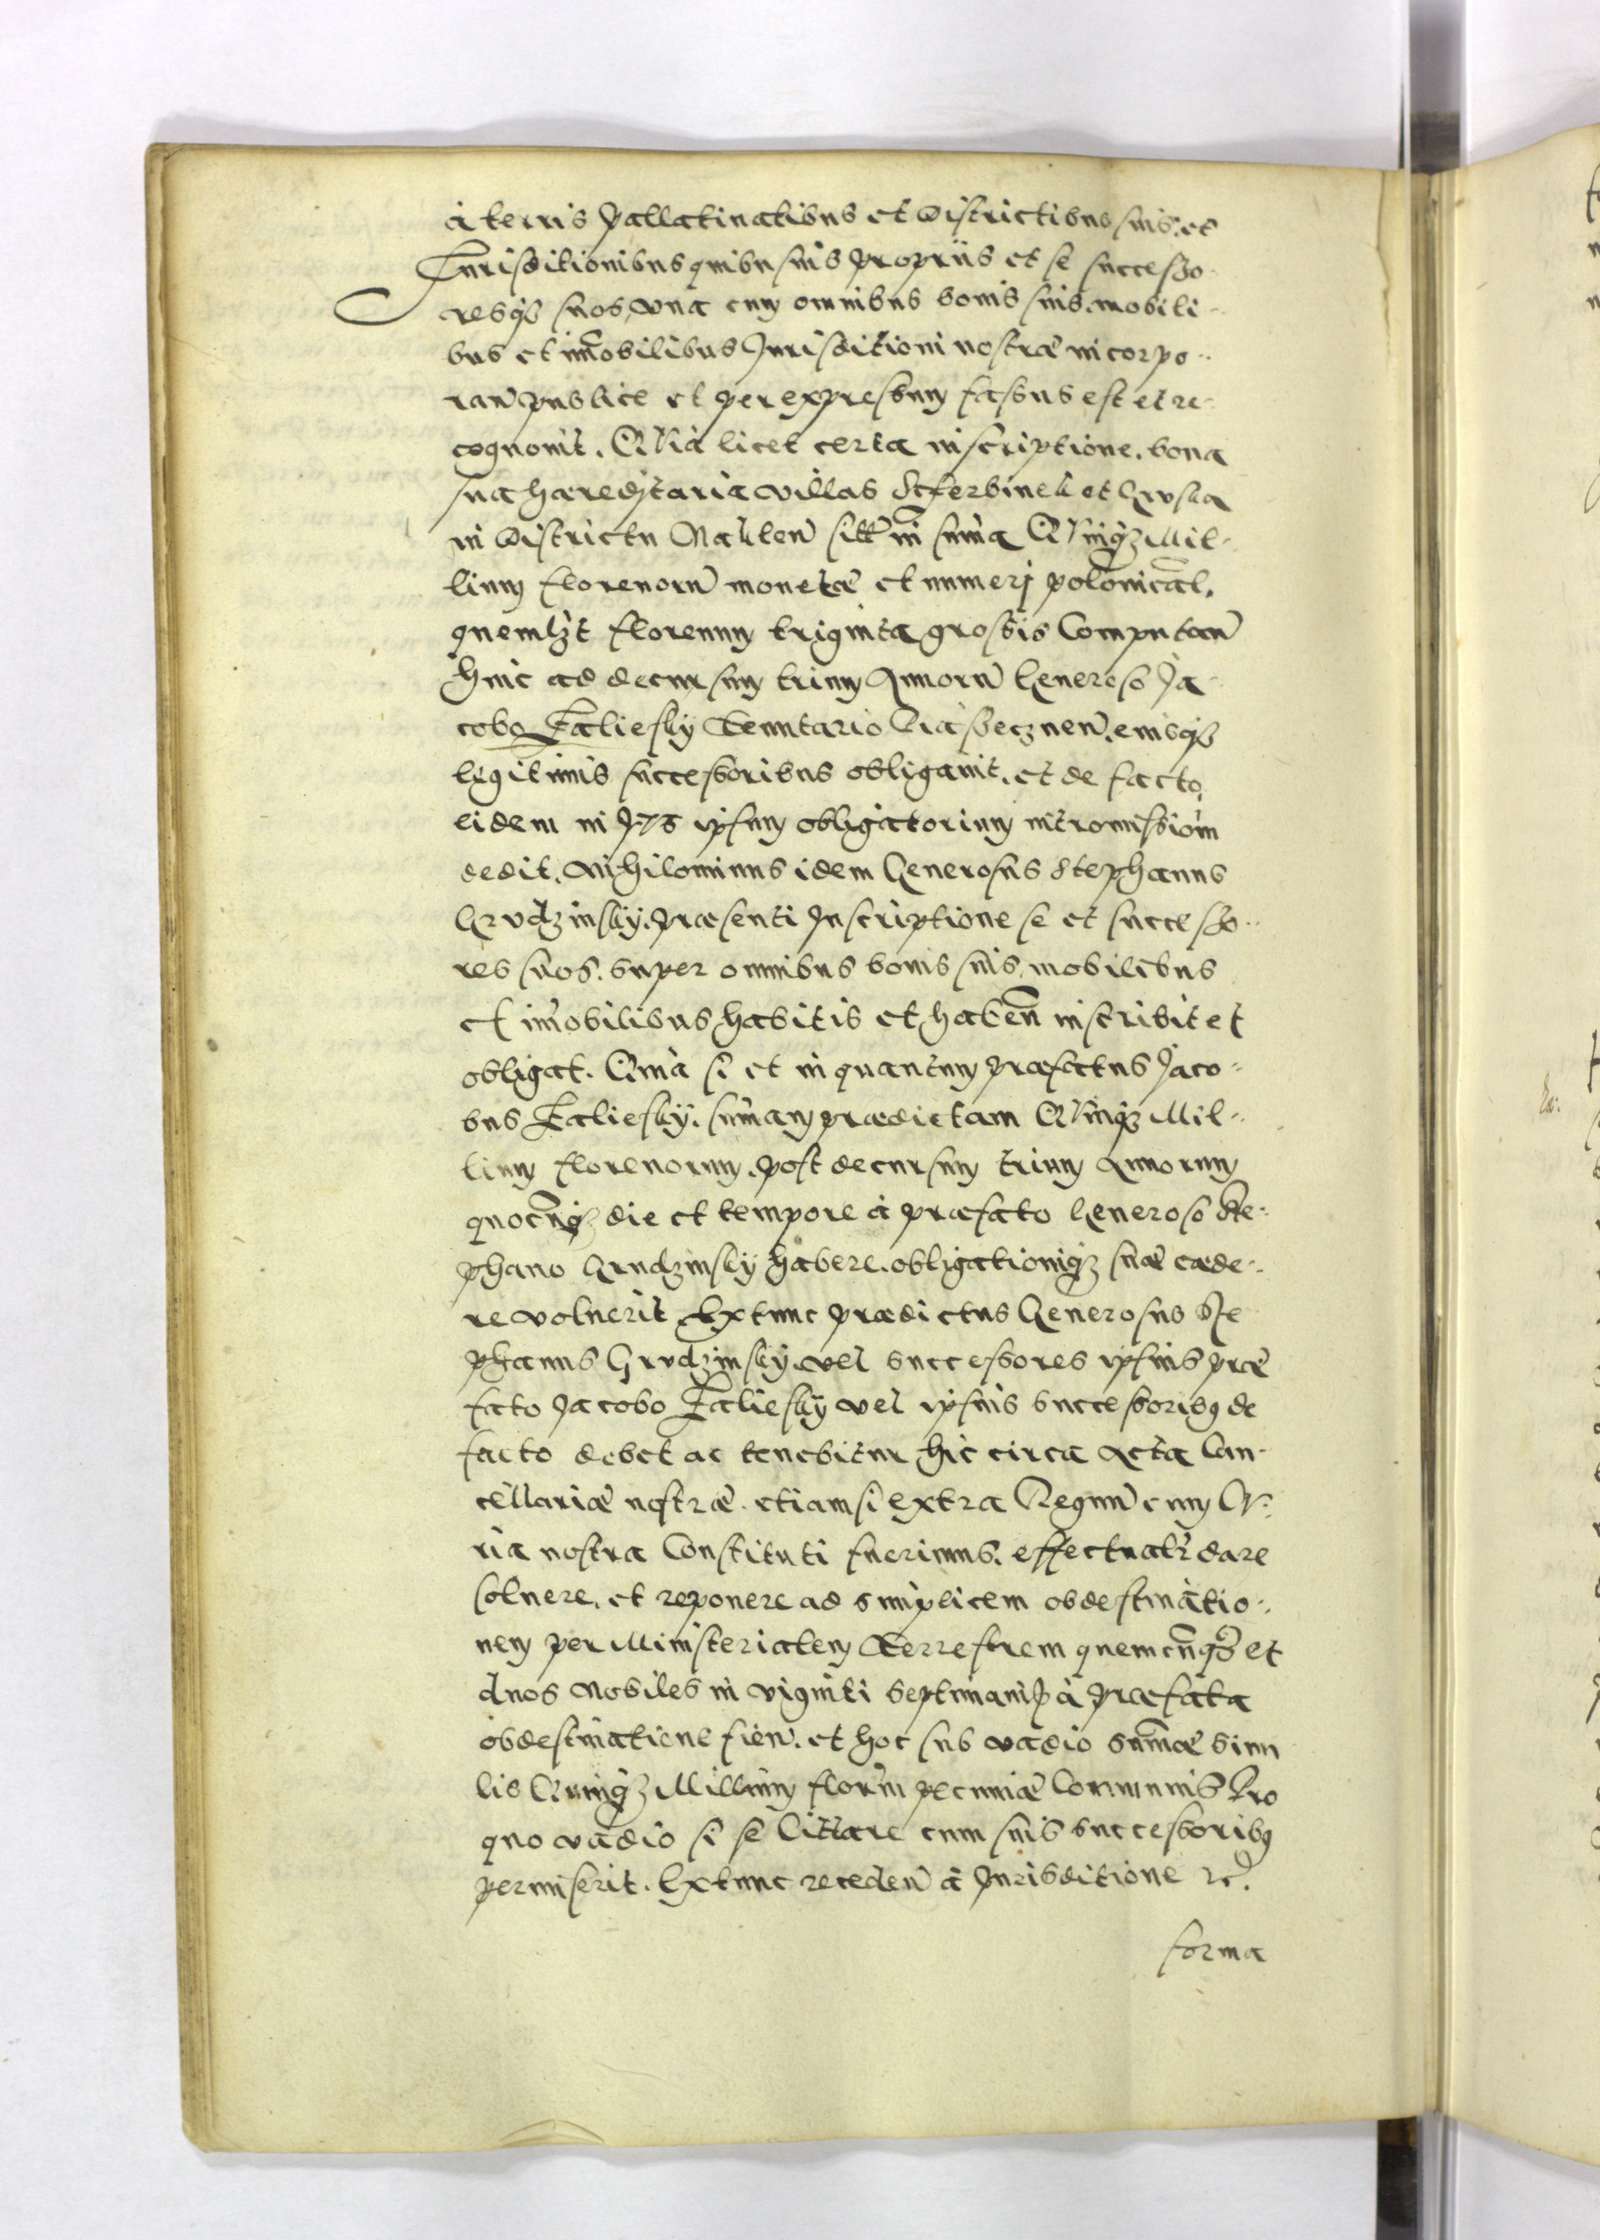 à terris Pallatinatibus et Districtibus suis, et
Jurisditionibus quibusuis proprijs et se successo-
resqз suos, vna cum omnibus bonis suis mobili-
bus et im̃obilibus Jurisditioni nostræ incorpo-
ran̄ publice et per expressum fassus est et re-
cognouit. Quia licet certa inscriptione, bona
sua hæreditaria villas Sczerbinek et
in Districtu Naklen̄ sitt̄ in sum̃a Quinqз Mil-
lium florenorū monetæ et numerj polonicāl,
quemlзt florenum triginta grossis Computan̄
hinc ad decursum trium Annorū Generoso Ja-
cobo Tenutario eiusqз
legitimis successoribus obligauit, et de facto
eidem in ipsum obligatorium intromissiōm
dedit. Nihilominus idem Generosus Stephanus
Grvdzinskÿ præsenti Inscriptione se et successo-
res suos, super omnibus bonis suis mobilibus
et im̃obilibus habitis et haben̄ inscribit et
obligat. Quia si et in quantum præfatus Jaco-
bus sum̃am prædictam Quinqз Mil-
lium florenorum, post decursum trium Annorum
quocūnqз die et tempore à præfato Generoso Ste-
phano Grudzinskÿ habere, obligationiqз suæ cæde-
re voluerit Extunc prædictus Generosus Ste
phanus Grvdzinskÿ, vel successores ipsius præ
fato Jacobo vel ipsius successoribз de
facto debet ac tenebitur hic circa Acta Can-
cellariæ nostræ, etiamsi extra Regnū cum Cu-
ria nostra Constituti fuerimus, effectualr̄ dare
soluere, et reponere ad simplicem obdestinatio-
nem per Ministerialem Terrestrem quemcūnqз et
duos Nobiles in viginti septimanis à præfata
obdestinatione fien̄, et hoc sub vadio sum̃æ simi
lis Quinqз Millium flor̄m pecuniæ Com̃unis Pro
quo vadio si se Cittare cum suis successoribз
permiserit. Extunc receden̄ à Jurisditione rc.
forma